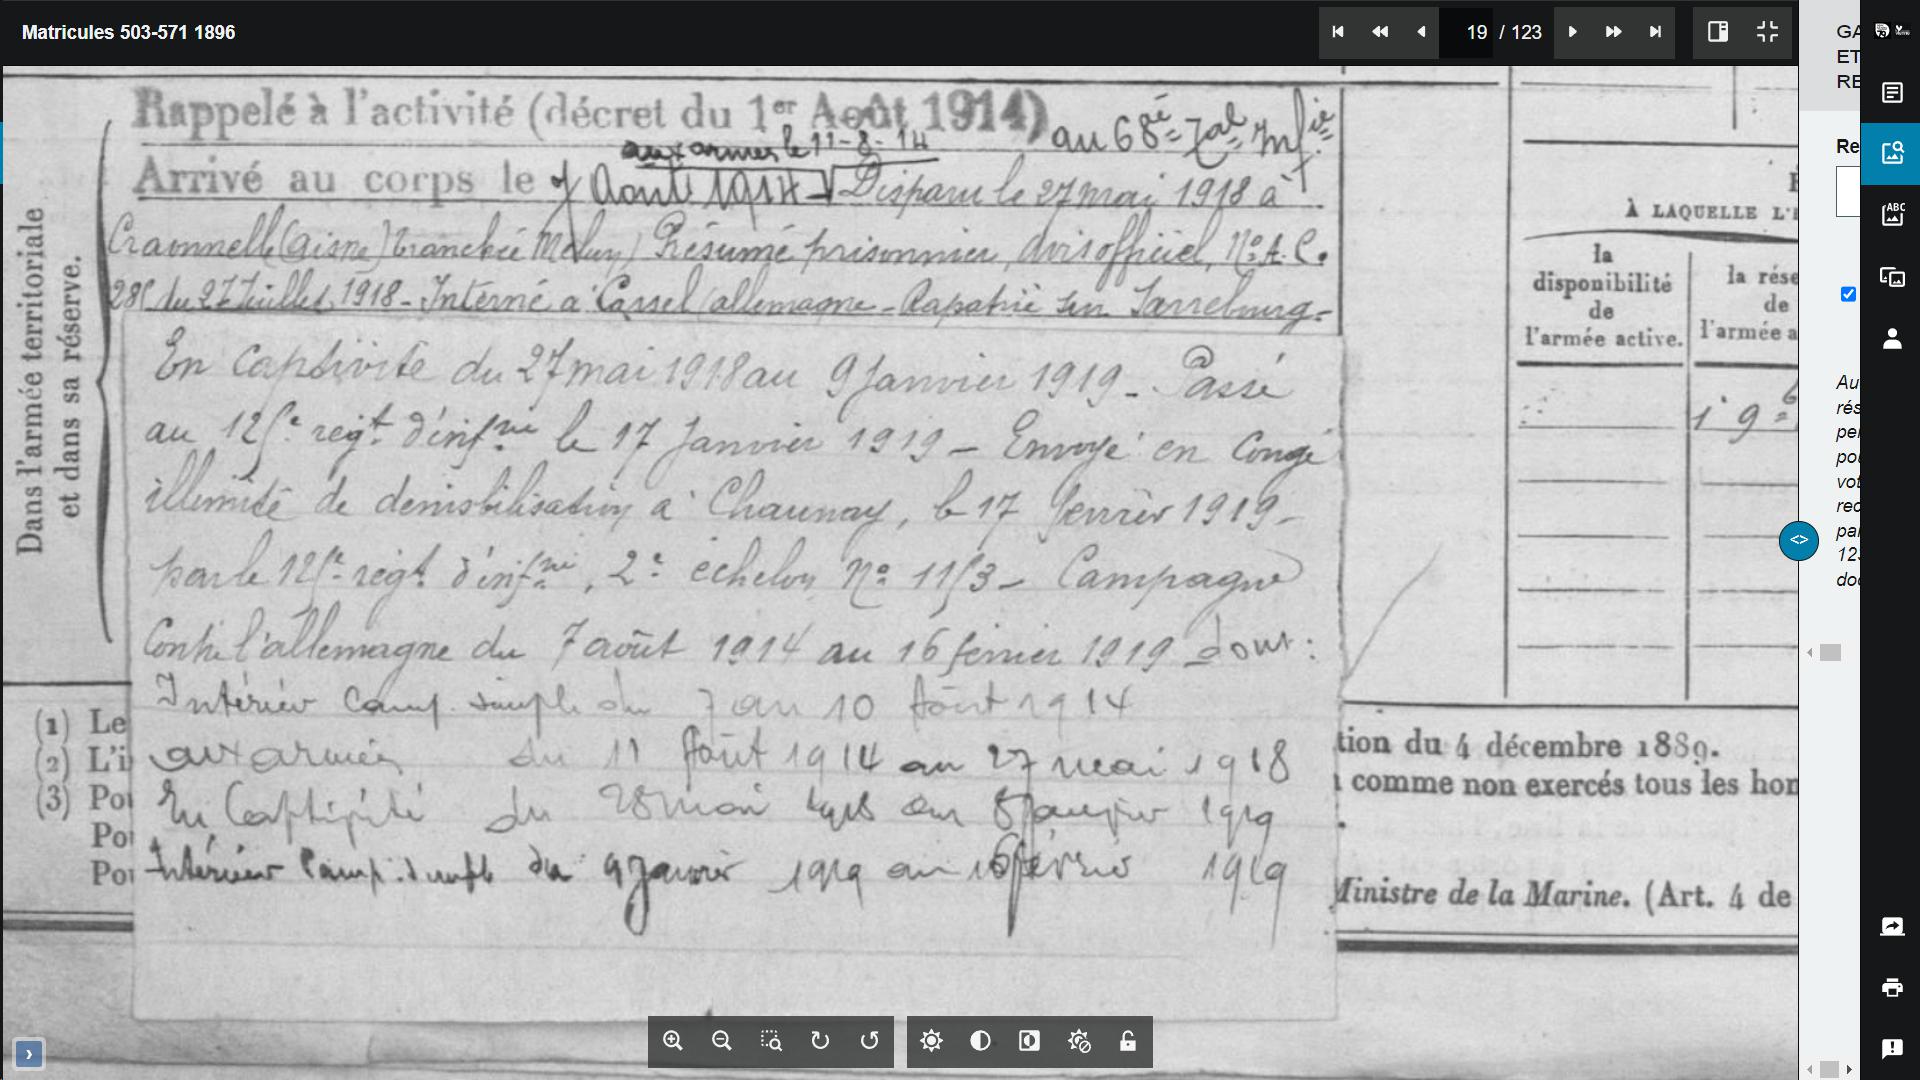 Matricules 503-571 1896
19 / 123
Rappelé à l'activité (décret du 1er Août 1914) au 68è Ral Infie
aux armées le 11-8-14
Arrivé au corps le 7 Août 1914 Disparu le 27 mai 1918 à
Craonnelle (Aisne) tranchée Présumé prisonnier, avis officiel, No A.C.
du 27 Juillet 1918 - Interné à Cassel allemagne - Rapatrié sur Sarrebourg -
En captivité du 27 mai 1918 au 9 Janvier 1919 - Passé
au 125e régt d'infrie le 17 Janvier 1919 - Envoyé en Congé
illimité de démobilisation à Chaunay, le 17 février 1919 -
par le 125e régt d'infrie, 2e échelon No 1153 - Campagne
Contre l'allemagne du 7 août 1914 au 16 février 1919 dont :
Intérieur Camp. simple du 7 au 10 Août 1914
aux armées du 11 Août 1914 au 27 mai 1918
En Captivité du 28 mai 1918 au 8 Janvier 1919
Intérieur Camp. simple du 9 Janvier 1919 au 16 février 1919
Dans l'armée territoriale
et dans sa réserve.
(1) Le
(2) L'i
(3) Pou
Pou
Pou
À LAQUELLE L'
la
disponibilité
de
l'armée active.
la rése
de
l'armée a
tion du 4 décembre 1889.
comme non exercés tous les hom
Ministre de la Marine. (Art. 4 de
GA
ET
RE
Re
Au
rés
per
pou
vot
rec
par
12
doc
ABC
<>